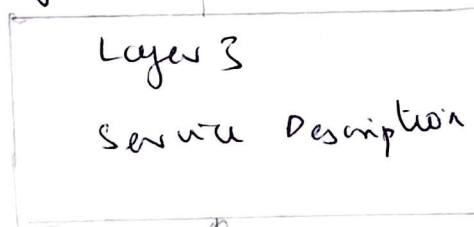 Layer 3
Service Description